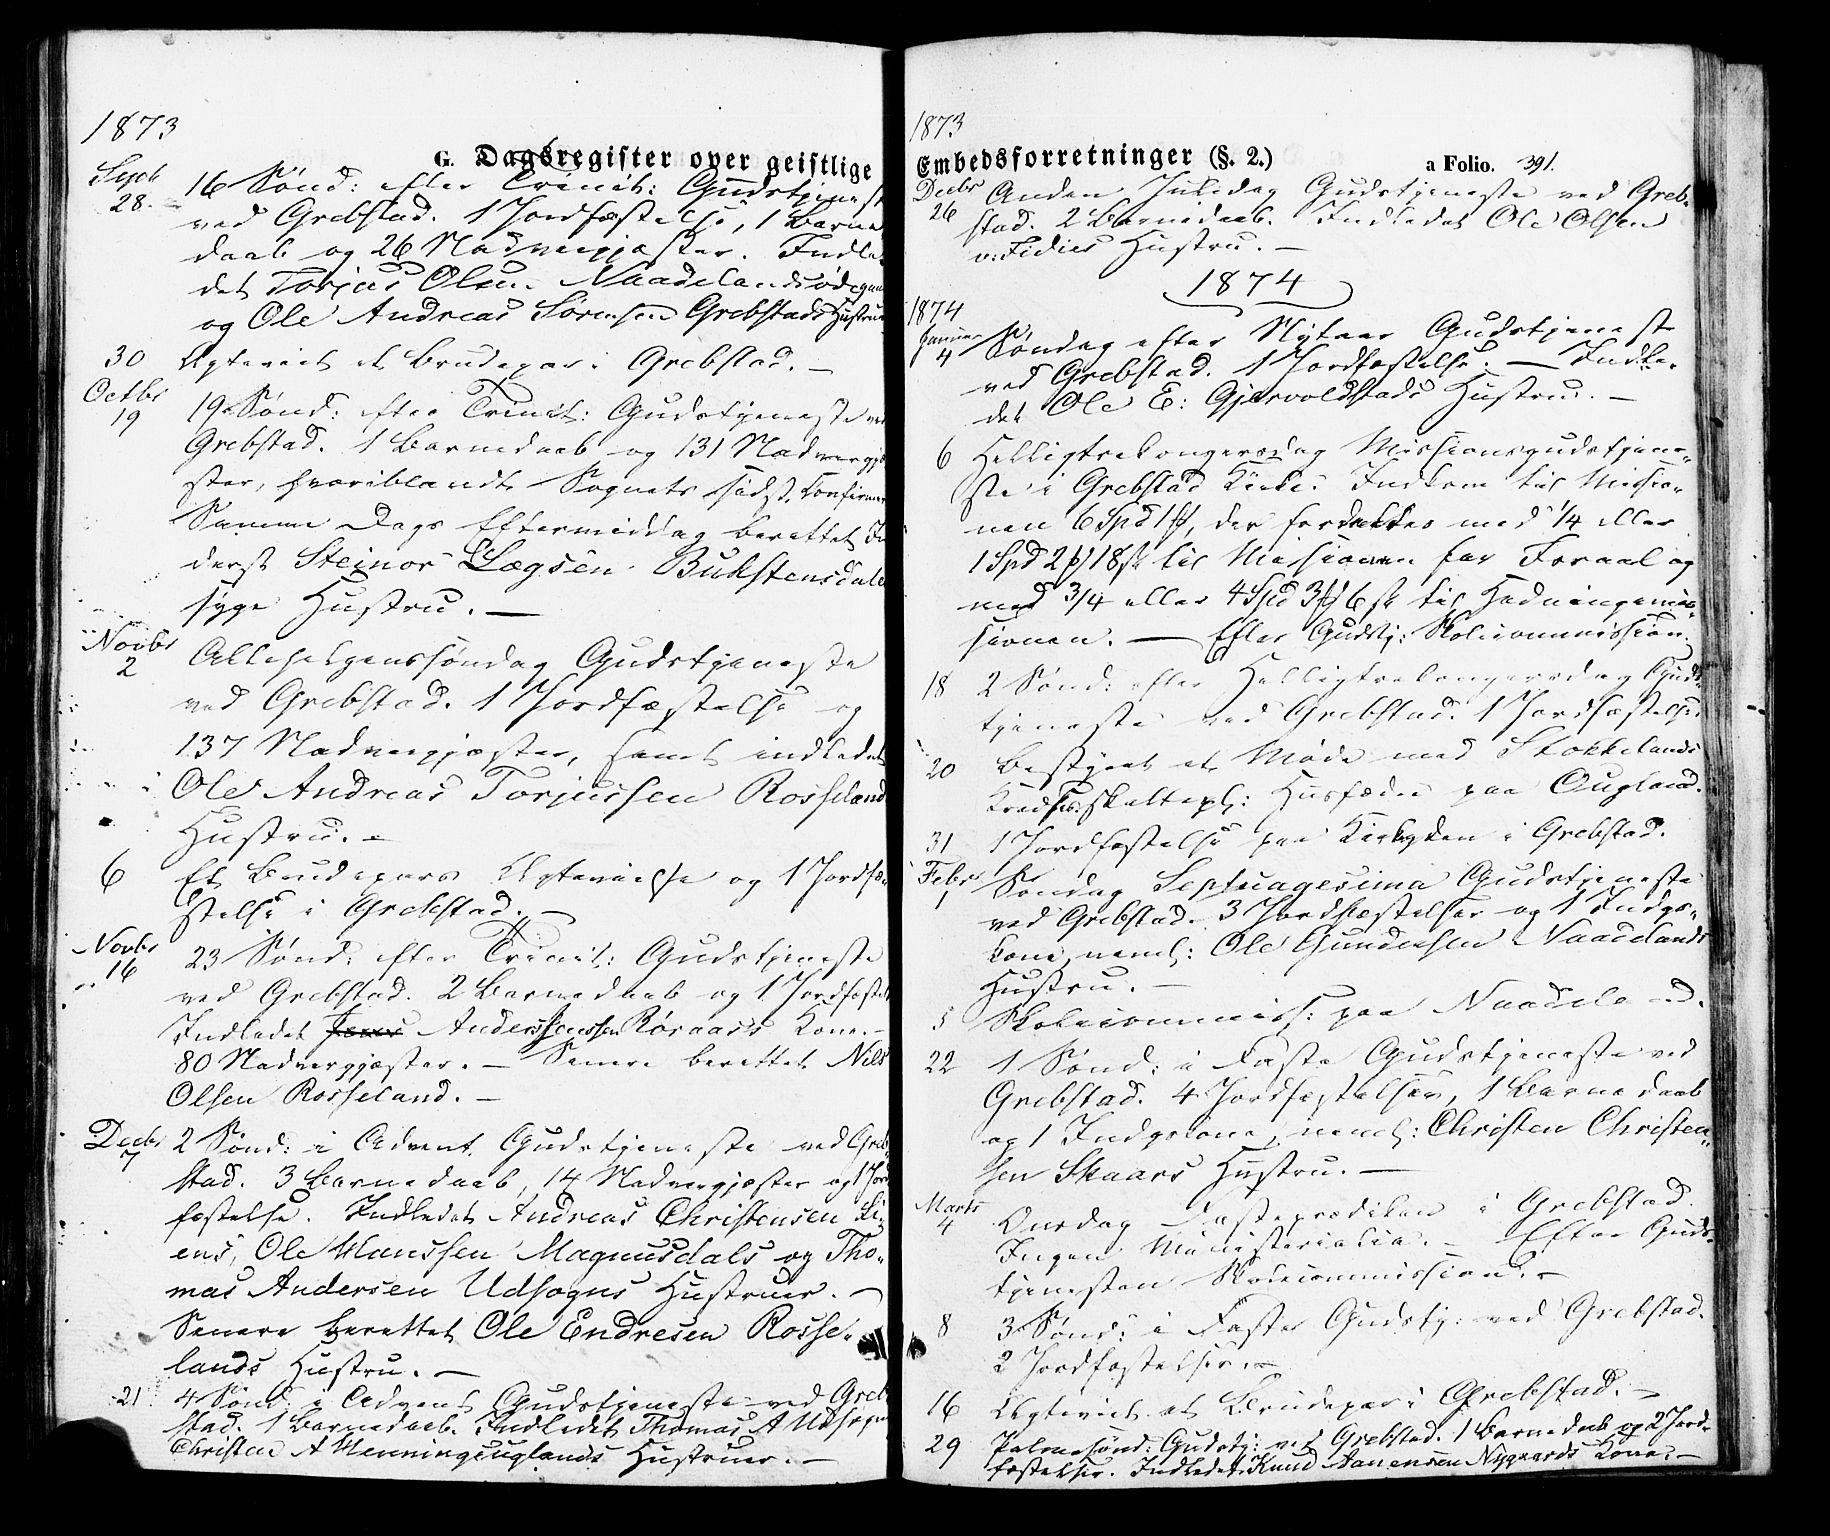 1873
G. Dagsregister over geistlige
Septb 16 Sønd: efter Trinit: Gudstjeneste
28. ved Grebstad. 1 Jordfæstelse, 1 Barne
daab og 26 Nadvergjæster. Indle
det Torjus Olsen Naadelandsødegaa
og Ole Andreas Sørensen Grebstads Hustruer
30 Egteviet et Brudepar i Grebstad. —
Octbr 19 Sønd: efter Trinit: Gudstjeneste ved
19 Grebstad. 1 Barnedaab og 131 Nadvergjæ
ster, hvoriblandt Sognets sidst. Konfirmer
Samme Dags Eftermiddag berettet In
derst Steinor Lægsen Bukstensdals
syge Hustru. —
Novbr Allehelgenssøndag Gudstjeneste
2 ved Grebstad. 1 Jordfæstelse og
137 Nadvergjæster, samt indledet
Ole Andreas Torjussen Rosseland
Hustru. —
6 Et Brudepars Egtevielse og 1 Jordfæ
stelse i Grebstad. —
Novbr 23 Sønd: efter Trinit: Gudstjeneste
16 ved Grebstad. 2 Barnedaab og 1 Jordfæstel
Indledet Anders Jenssen Røraas Kone. —
80 Nadvergjæster. — Senere berettet Nils
Olsen Rosseland. —
Decbr 2 Sønd: i Advent Gudstjeneste ved Greb
7 stad. 3 Barnedaab, 14 Nadvergjæster og 1 Jord
fæstelse. Indledet Andreas Christensen Li
ens, Ole Hanssen Magnusdals og Tho-
mas Andersen Udsogns Hustruer. —
Senere berettet Ole Endresen Rosse-
lands Hustru. —
21 4 Sønd: i Advent Gudstjeneste ved Greb
stad. 1 Barnedaab. Indledet Thomas A Udsogn
Christen A Henninguglands Hustruer. —
1873
Embedsforretninger (§. 2.) a Folio. 391.
Decbr Anden Juledag Gudstjeneste ved Greb-
26 stad. 2 Barnedaab. Indledet Ole Olsen
v: Hustru. —
1874
1874
Januar Søndag efter Nytaar Gudstjeneste
4 ved Grebstad. 1 Jordfæstelse. — Indle-
det Ole E: Gjervoldstads Hustru. —
6 Helligtrekongersdag Missionsgudstjene-
ste i Grebstad Kirke. Indkom til Missio-
nen 6 Spd 1 ß, der fordeltes med 1/4 eller
1 Spd 2 ß 18 sk til Missionen for Israel og
med 3/4 eller 4 Spd 3 ß 6 sk til Hedningemis-
sionen. — Efter Gudstj: Skolecommission.
18 2 Sønd: efter Helligtrekongersdag Guds-
tjeneste ved Grebstad. 1 Jordfæstelse
20 Bestyret et Møde med Stokkelands
Kredses skattepl: Husfædre paa Augland.
31 1 Jordfæstelse paa Kirkegden i Grebstad.
Febr Søndag Septuagesima Gudstjeneste
1 ved Grebstad. 3 Jordfæstelser og 1 Indgs-
kone, neml: Ole Gundersen Naadelands
Hustru. —
5 Skolecommiss: paa Naadeland.
22 1 Sønd: i Faste Gudstjeneste ved
Grebstad. 4 Jordfæstelser, 1 Barnedaab
og 1 Indgskone, neml: Christen Christen-
sen Skaars Hustru. —
Marts Onsdag Fasteprædiken i Grebstad.
4 Ingen Ministerialia. — Efter Guds-
tjenesten Skolecommission. —
8 3 Sønd: i Faste Gudstj: ved Grebstad.
2 Jordfæstelser. —
16 Egteviet et Brudepar i Grebstad. —
29 Palmesønd: Gudstj: ved Grebstad. 1 Barnedaab og 2 Jord-
fæstelser. Indledet Knud Aanensen Nygaards Kone. —